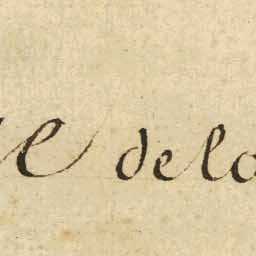 e delo